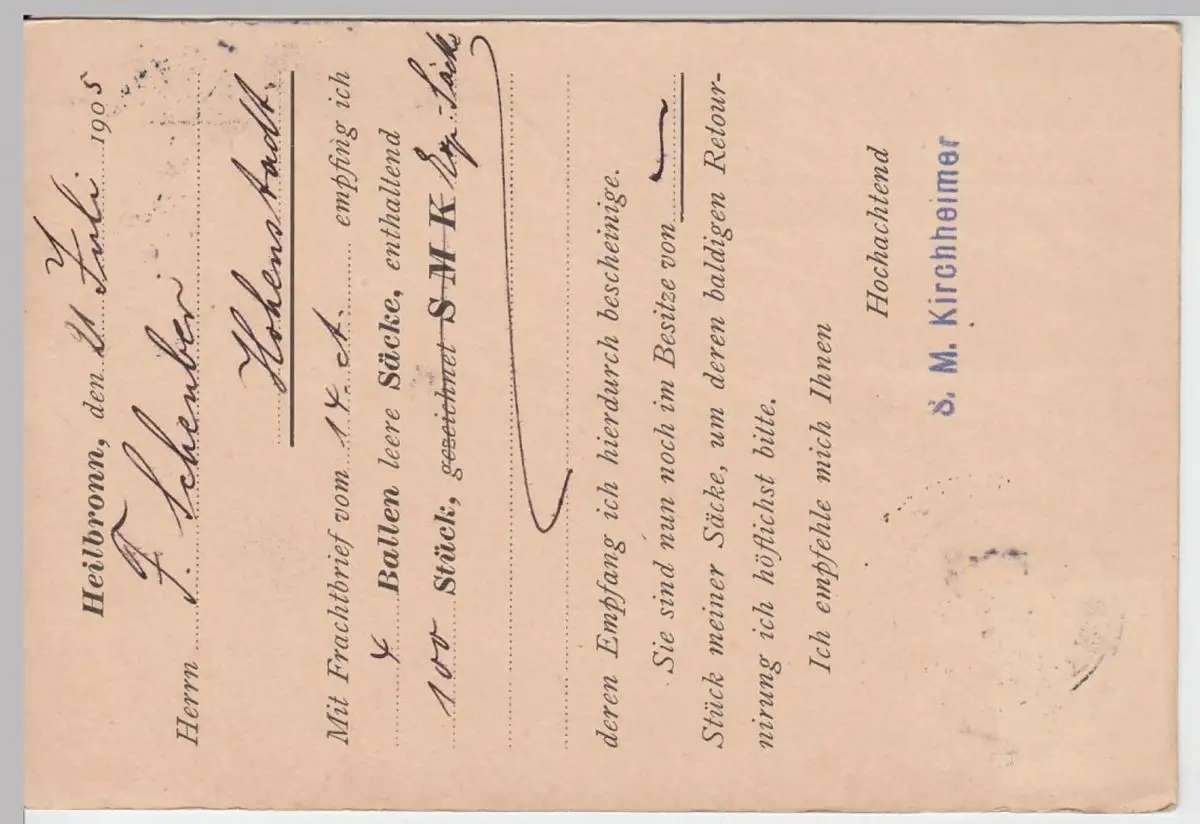 Heilbronn, den 21 Juli 1905
Herrn F. Schenber
Hohenstadt.
Mit Frachtbrief vom 14. ct. empfing ich
Ballen leere Säcke, enthaltend
100 Stück, gezeichnet S M K Säcke
deren Empfang ich hierdurch bescheinige.
Sie sind nun noch im Besitze von
Stück meiner Säcke, um deren baldigen Retour-
nirung ich höflichst bitte.
Ich empfehle mich Ihnen
Hochachtend
S. M. Kirchheimer